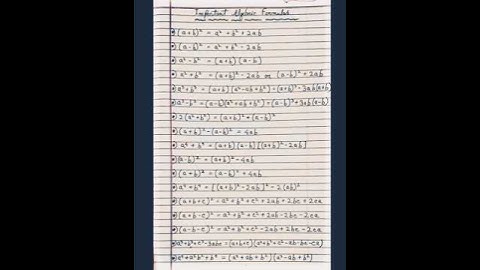 Important Algebraic Formulas
(a+b)² = a²+b²+2ab
(a-b)² = a²+b²-2ab
a²-b² = (a+b)(a-b)
a²+b² = (a+b)²-2ab or (a-b)²+2ab
a³+b³ = (a+b)(a²-ab+b²) = (a+b)³-3ab(a+b)
a³-b³ = (a-b)(a²+ab+b²) = (a-b)³+3ab(a-b)
2(a²+b²) = (a+b)²+(a-b)²
(a+b)²-(a-b)² = 4ab
= (a+b)(a-b)[(a+b)²-2ab]
(a-b)² = (a+b)²-4ab
(a+b)² = (a-b)²+4ab
a⁴+b⁴ = [(a+b)²-2ab]²-2(ab)²
(a+b+c)² = a²+b²+c²+2ab+2bc+2ca
(a+b-c)² = a²+b²+c²+2ab-2bc-2ca
(a-b-c)² = a²+b²+c²-2ab+2bc-2ca
a³+b³+c³-3abc = (a+b+c)(a²+b²+c²-ab-bc-ca)
a⁴+a²b²+b⁴ = (a²+ab+b²)(a²-ab+b²)